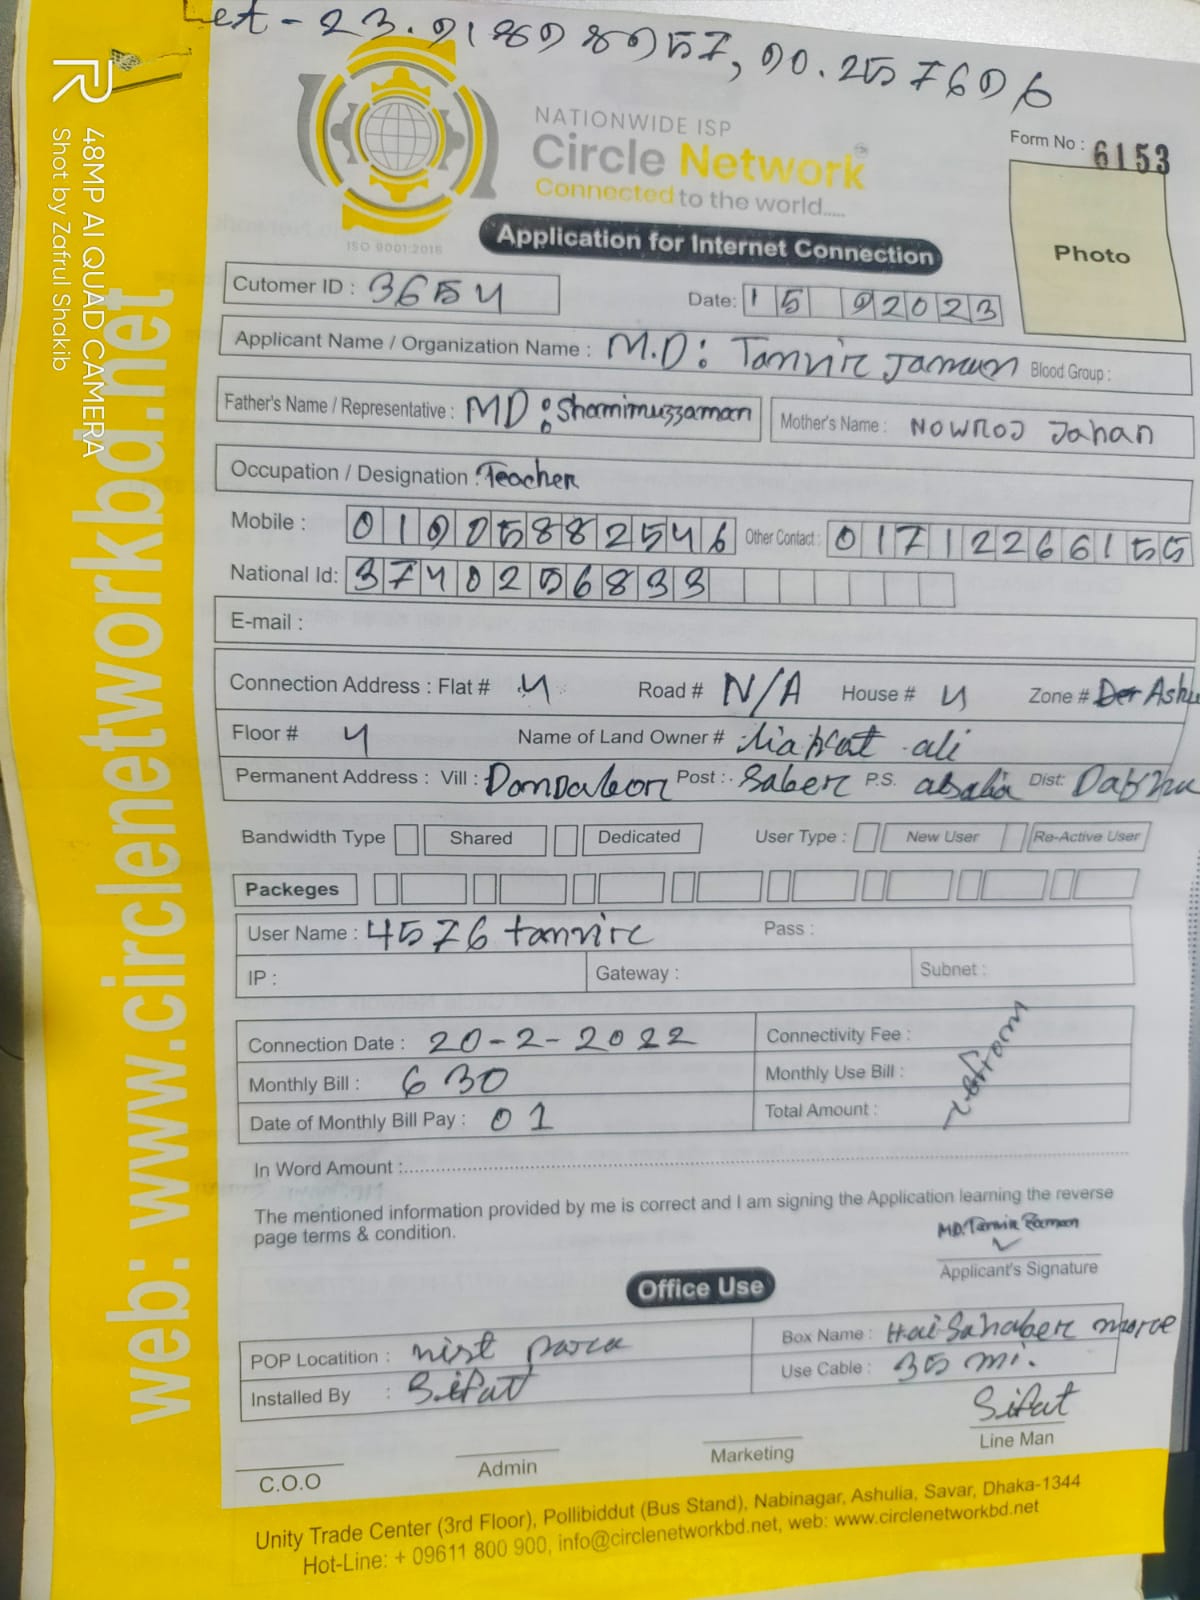 Let - 23.9189 8957, 90.257696
NATIONWIDE ISP
Circle Network
Connected to the world.....
ISO 9001:2015
Form No : 6153
Photo
Application for Internet Connection
Cutomer ID : 3654
Date: 15 92023
Applicant Name / Organization Name : M.D: Tanvir Jaman Blood Group :
Father's Name / Representative : MD : Shamimuzzaman
Mother's Name : Nowroj Jahan
Occupation / Designation : Teacher
Mobile : 01905882546 Other Contact : 01712266155
National Id: 3740256833
E-mail :
Connection Address : Flat # 4 Road # N/A House # 4 Zone #
Floor # 4 Name of Land Owner # liakat ali
Permanent Address : Vill : Dondabor Post : Saber P.S. Dist:
Bandwidth Type Shared Dedicated User Type : New User Re-Active User
Packeges
User Name : 4576 tanvir Pass :
IP : Gateway : Subnet :
Connection Date : 20-2-2022 Connectivity Fee :
Monthly Bill : 630 Monthly Use Bill :
Date of Monthly Bill Pay : 01 Total Amount :
In Word Amount :
The mentioned information provided by me is correct and I am signing the Application learning the reverse
page terms & condition.
MD. Tanvir Zaman
Applicant's Signature
Office Use
POP Locatition : nist para Box Name : Hai Sahaber more
Installed By : Sifat Use Cable : 35 mi.
Sifat
C.O.O Admin Marketing Line Man
Unity Trade Center (3rd Floor), Pollibiddut (Bus Stand), Nabinagar, Ashulia, Savar, Dhaka-1344
Hot-Line: + 09611 800 900, info@circlenetworkbd.net, web: www.circlenetworkbd.net
web: www.circlenetworkbd.net
48MP AI QUAD CAMERA
Shot by Zafrul Shakib